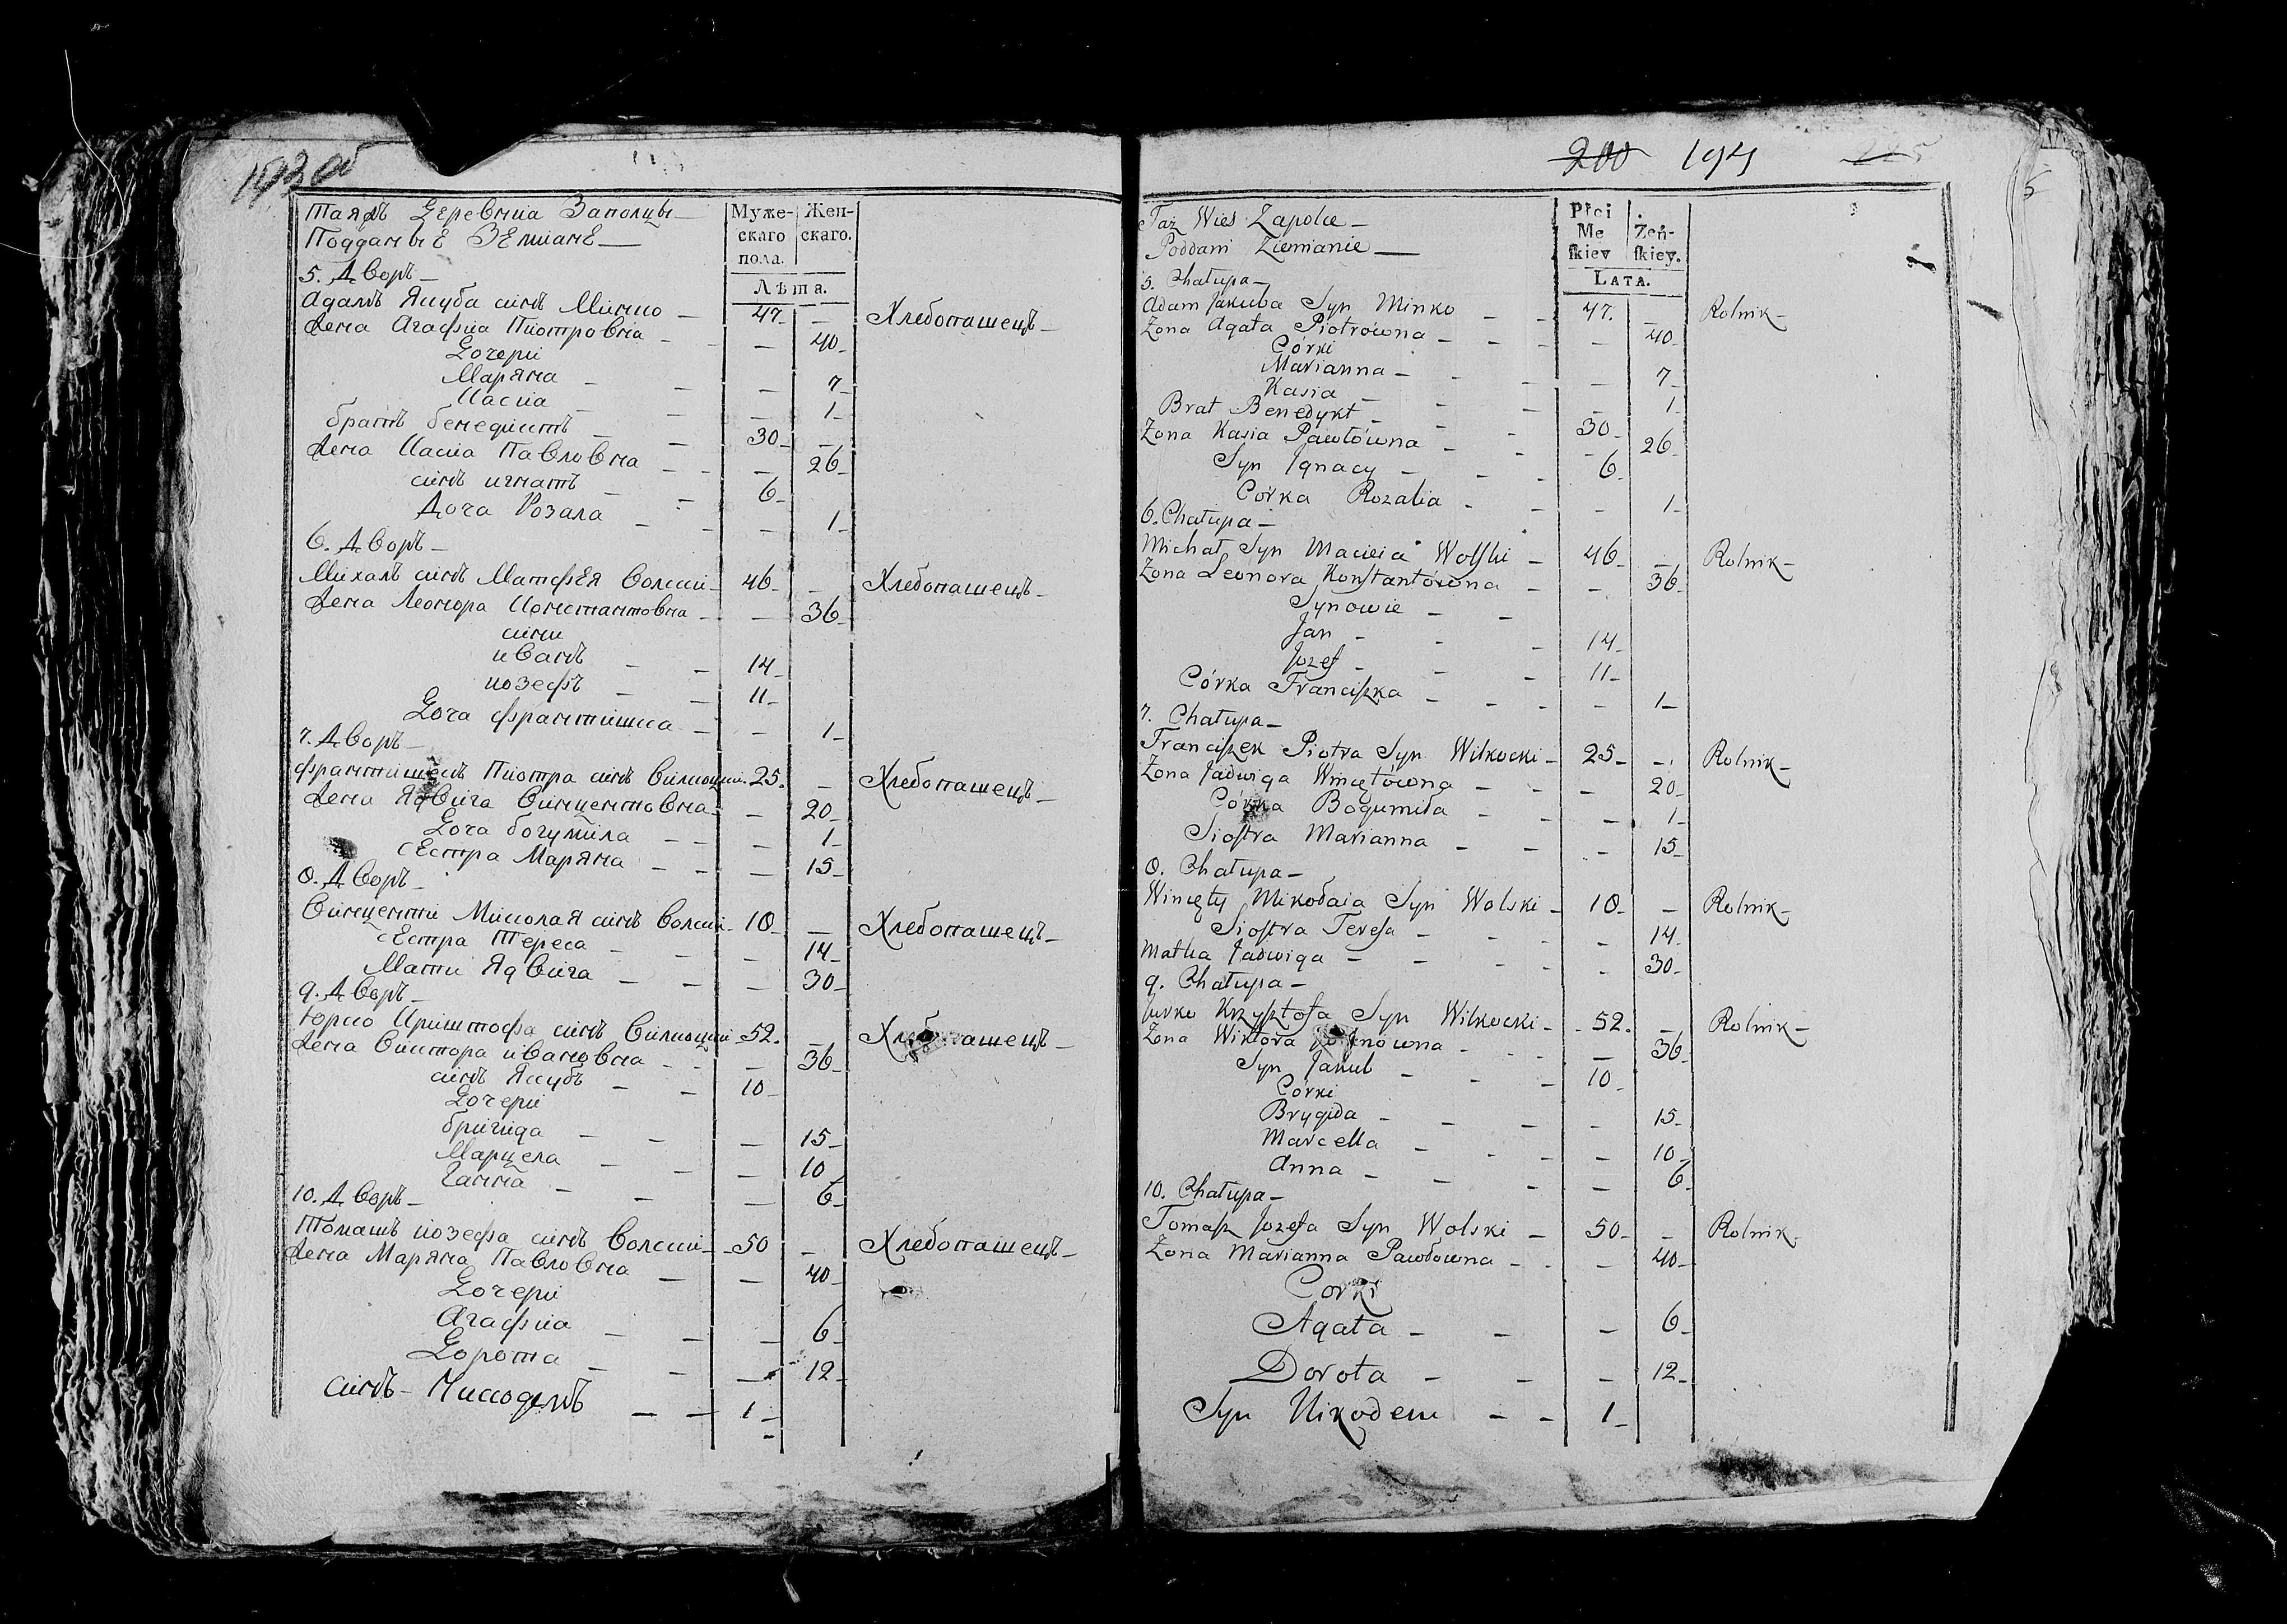 193 об
Таяжъ Деревниа Заполцы —
Подданые Земяне —
Муже-
скаго
пола.
Жен-
скаго.
Лѣта.
5. Дворъ —
Адамъ Якуба синъ Минко — 47. — Хлебопашецъ —
Жена Агафиа Пиотровна — — 40 —
Дочери
Марянa — — 7 —
Касиа — — 1 —
братъ бенедиктъ — 30 — —
Жена Касиа Павловна — — 26 —
синъ игнатъ — 6 —
Доча Розала — — 1 —
6. Дворъ —
Михалъ синъ Матфея Волски — 46 — — Хлебопашецъ —
Жена Леонора Константовна — — 36 —
сини
иванъ — 14 —
иозефъ — 11 —
Доча франтишка — — 1 —
7. Дворъ —
франтишекъ Пиотра синъ Вилкоцки — 25. — Хлебопашецъ —
Жена Ядвига Винцентовна — — 20 —
Доча богумила — — 1 —
сестра Маряна — — 15 —
8. Дворъ —
Винценти Миколая синъ Волски — 18 — — Хлебопашецъ —
сестра Тереса — — 14 —
Мати Ядвига — — 30 —
9. Дворъ —
Юрко Криштофа синъ Вилкоцки — 52. — Хлебопашецъ —
Жена Виктора ивановна — — 36 —
синъ Якубъ — 10 —
Дочери
бригида — — 15 —
Марцела — — 10
Ганна — — 6 —
10. Дворъ —
Томашъ иозефа синъ Волски — 50 — Хлебопашецъ —
Жена Маряна Павловна — — 40 —
Дочери
Агафиа — — 6 —
Дорота — — 12 —
синъ — Никодемъ — 1 —
200 194
Taż Wieś Zapolce —
Poddani Ziemianie —
Płci
Mę
ſkiey
Żeń-
ſkiey.
LATA.
5. Chałupa —
Adam Jakuba Syn Minko — 47. — Rolnik —
Zona Agata Piotrówna — — 40 —
Córki
Marianna — — 7 —
Kasia — — 1 —
Brat Benedykt — 30 —
Zona Kasia Pawłówna — — 26 —
Syn Jgnacy — 6 —
Córka Rozalia — — 1 —
6. Chałupa —
Michał Syn Macieia Wolſki — 46 — — Rolnik —
Zona Leonora Konſtantówna — — 36 —
Synowie —
Jan — 14 —
Jozef — 11 —
Córka Franciſzka — — 1 —
7. Chałupa —
Franciſzek Piotra Syn Wilkocki — 25 — — Rolnik —
Zona Jadwiga Wincętówna — — 20 —
Córka Bogumiła — — 1 —
Sioſtra Marianna — — 15 —
8. Chałupa —
Wincęty Mikołaia Syn Wolski — 18 — — Rolnik —
Sioſtra Tereſa — — 14 —
Matka Jadwiga — — 30 —
9. Chałupa —
Jurko Krzyſztofa Syn Wilkocki — 52. — Rolnik —
Zona Wiktora — — 36 —
Syn Jakub — 10 —
Córki
Brygida — — 15 —
Marcella — — 10 —
Anna — — 6
10. Chałupa —
Tomaſz Jozefa Syn Wolski — 50 — — Rolnik —
Zona Marianna Pawłowna — — 40 —
Corki
Agata — — 6 —
Dorota — — 12 —
Syn Nikodem — 1 —